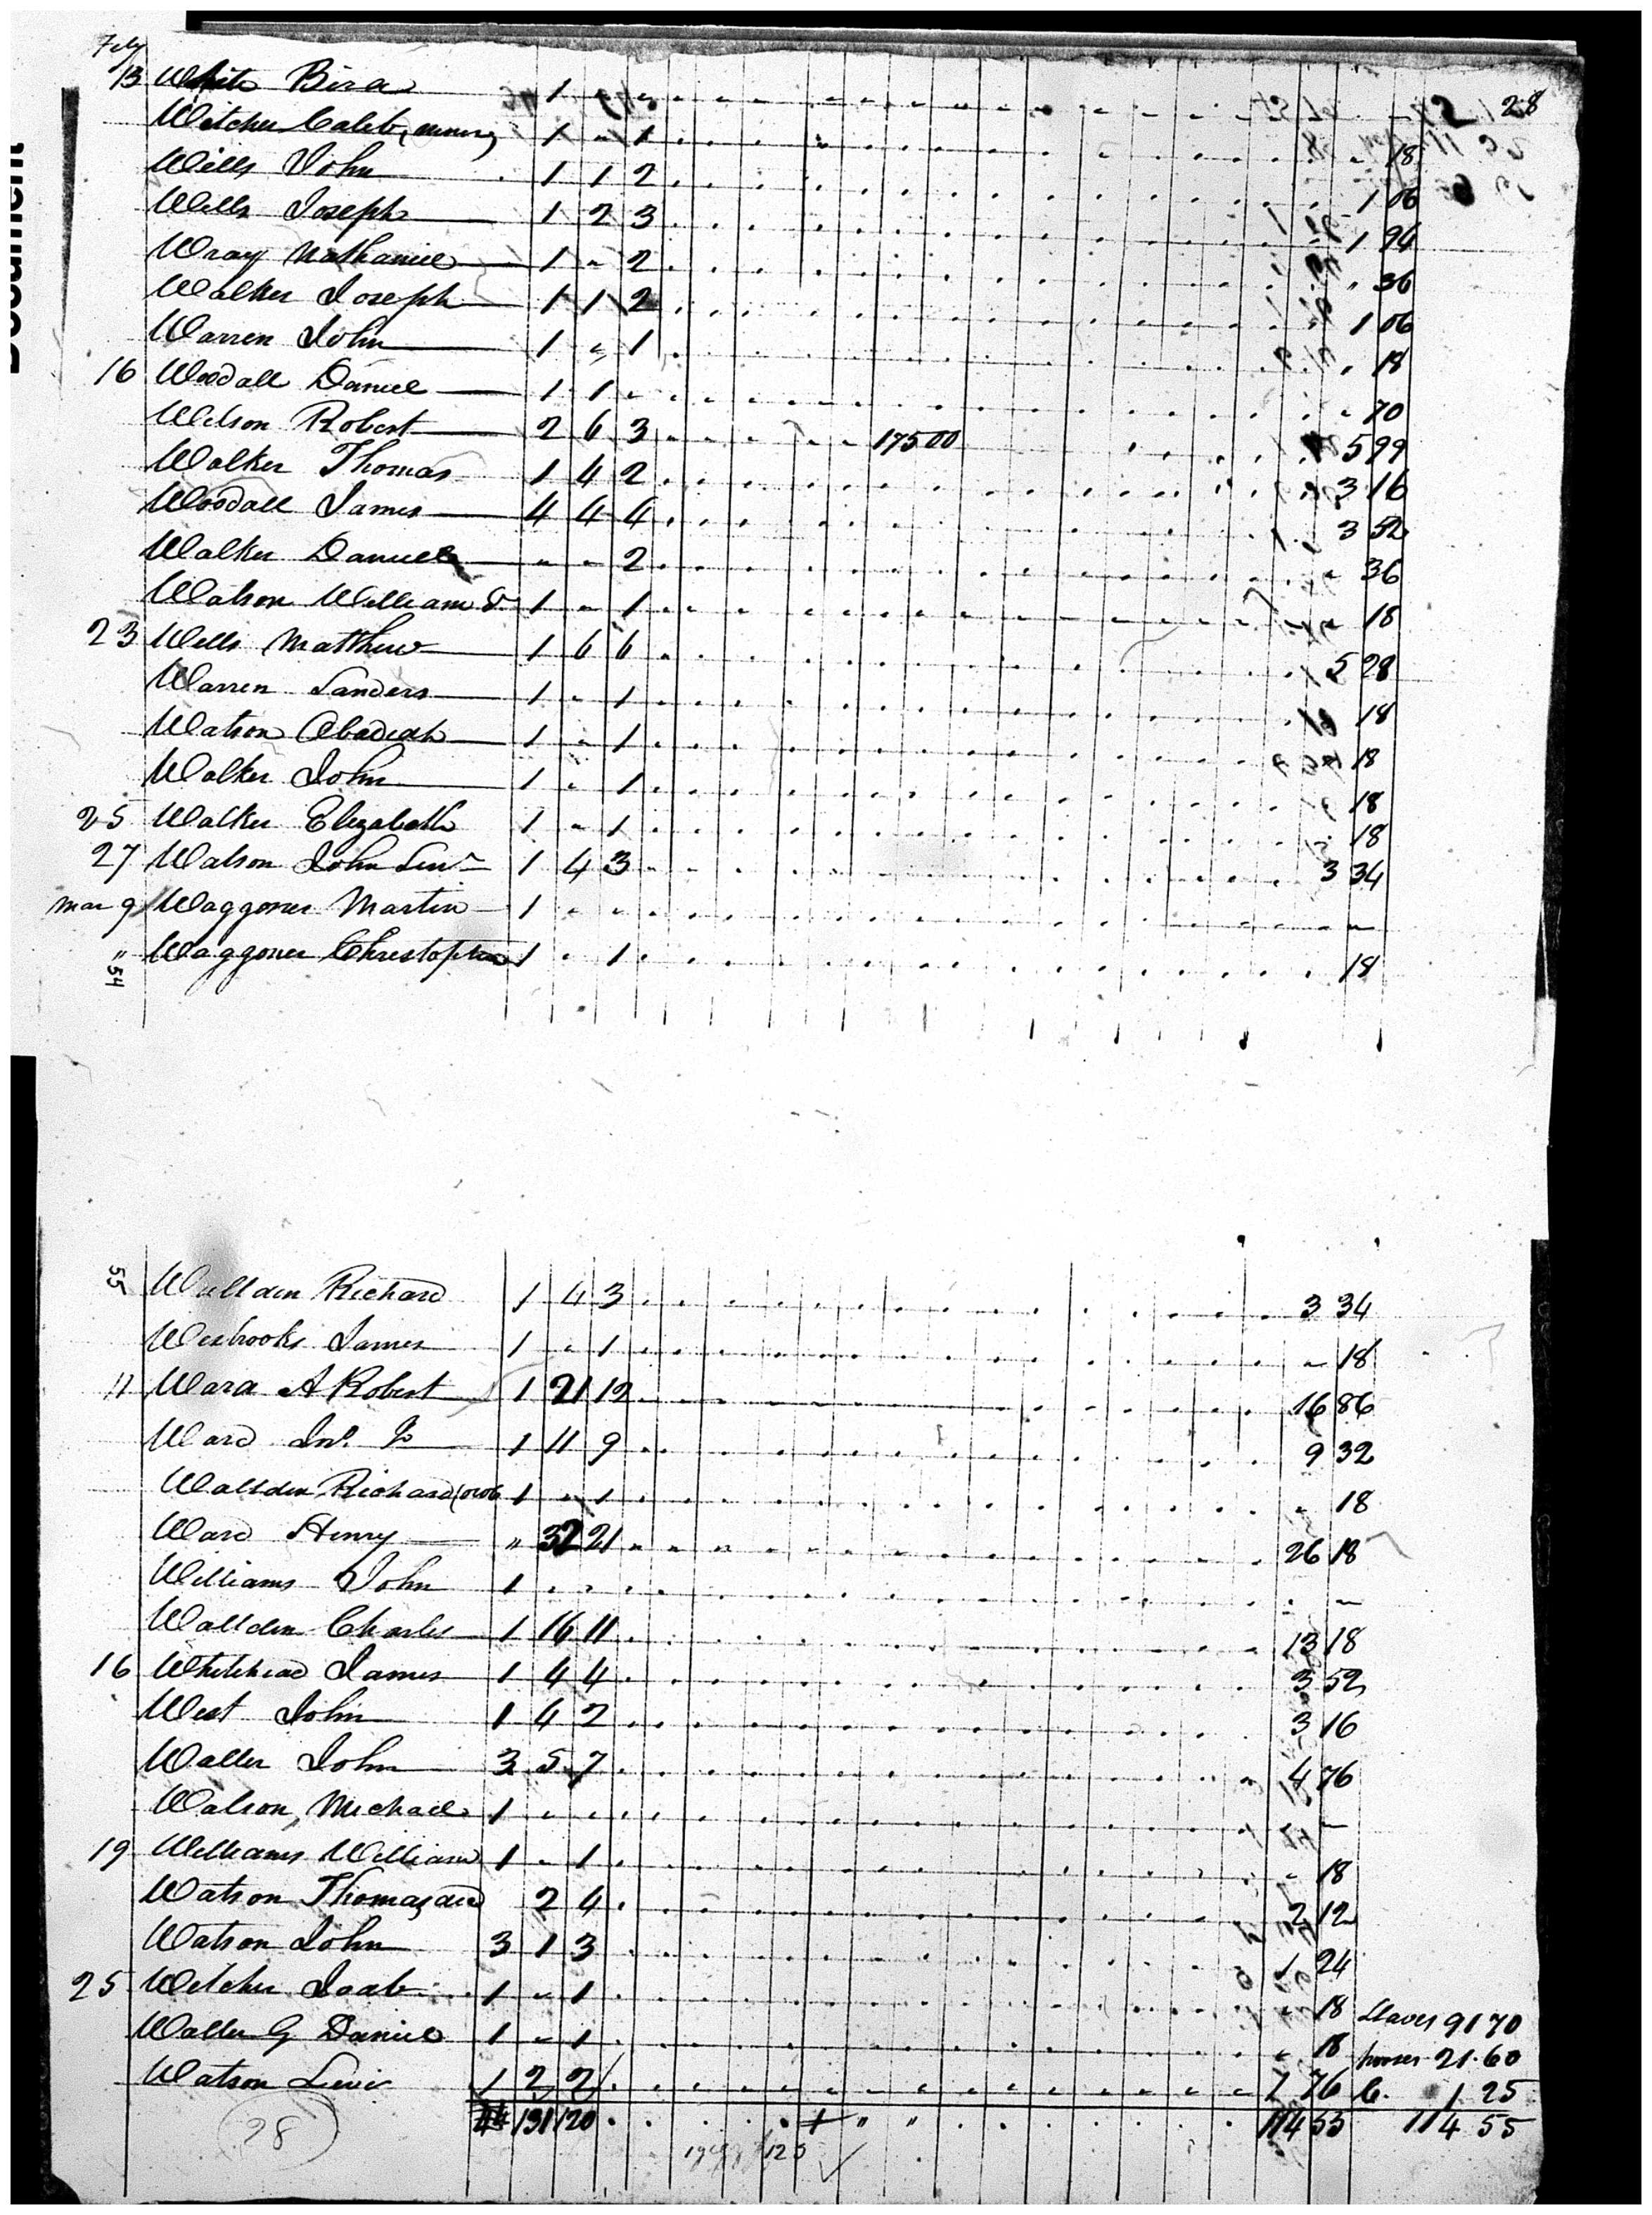 Feby
13 White Bira 1 " " 28
Witcher Caleb, 1 " 1 " 18
Wills John 1 1 2 1 06
Wills Joseph 1 2 3 1 94
Wray Nathaniel 1 " 2 " 36
Walker Joseph 1 1 2 1 06
Warren John 1 " 1 " 18
16 Woodall Daniel 1 1 " " 70
Wilson Robert 2 6 3 175 00 5 99
Walker Thomas 1 4 2 3 16
Woodall James 4 4 4 3 52
Walker Daniel " " 2 " 36
Watson William 1 " 1 " 18
23 Wells Matthew 1 6 6 5 28
Warren Sanders 1 " 1 18
Watson Abadiah 1 " 1 18
Walker John 1 " 1 18
25 Walker Elizabeth 1 " 1 18
27 Watson John Senr 1 4 3 3 34
Mar 9 Waggoner Martin 1 " "
" Waggoner Christopher 1 " 1 18
54
55 Wallden Richard 1 4 3 3 34
Wesbrooks James 1 " 1 " 18
11 Ward A Robert 1 21 12 16 86
Ward Jno. 1 11 9 9 32
Wallden Richard 1 " 1 " 18
Ward Henry " 32 21 26 18
Williams John 1 " " " "
Wallden Charles 1 16 11 13 18
16 Whitehead James 1 4 4 3 52
West John 1 4 2 3 16
Waller John 3 5 7 4 76
Watson Michael 1 " "
19 Williams William 1 " 1 " 18
Watson Thomas 2 4 2 12
Watson John 3 1 3 1 24
25 Witcher 1 " 1 " 18 Slaves 91 70
Waller G Daniel 1 " 1 " 18 horses 21.60
Watson Levi 1 2 2 1 76 C. 1 25
44 131 120 1 " " 114 55 114 55
28 120